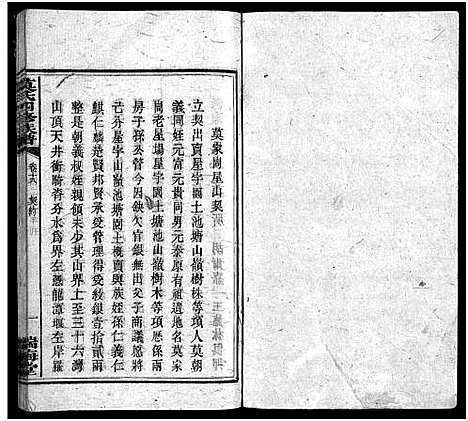 莫象崗屋山契
立契出賣屋宇園土池山嶺樹株等項人莫朝
義同姪元富元貴同男元泰原有祖遺地名莫家
崗老屋場屋宇園土塘池山嶺樹木等項憑係兩
房子孫公管今因缺欠官銀無出父子商議憑將
芒芬屋宇山嶺池塘園土概賣與族姪孫仁義仁
麒仁麟德賢邦賢承受管理得受紋銀壹拾貳兩
整是朝義叔姪親領未少其山界上至三十六灣
山頂天井衝騎脊分水爲界左邊龍潭堰左岸羅
氏四修族譜
卷十六 契約